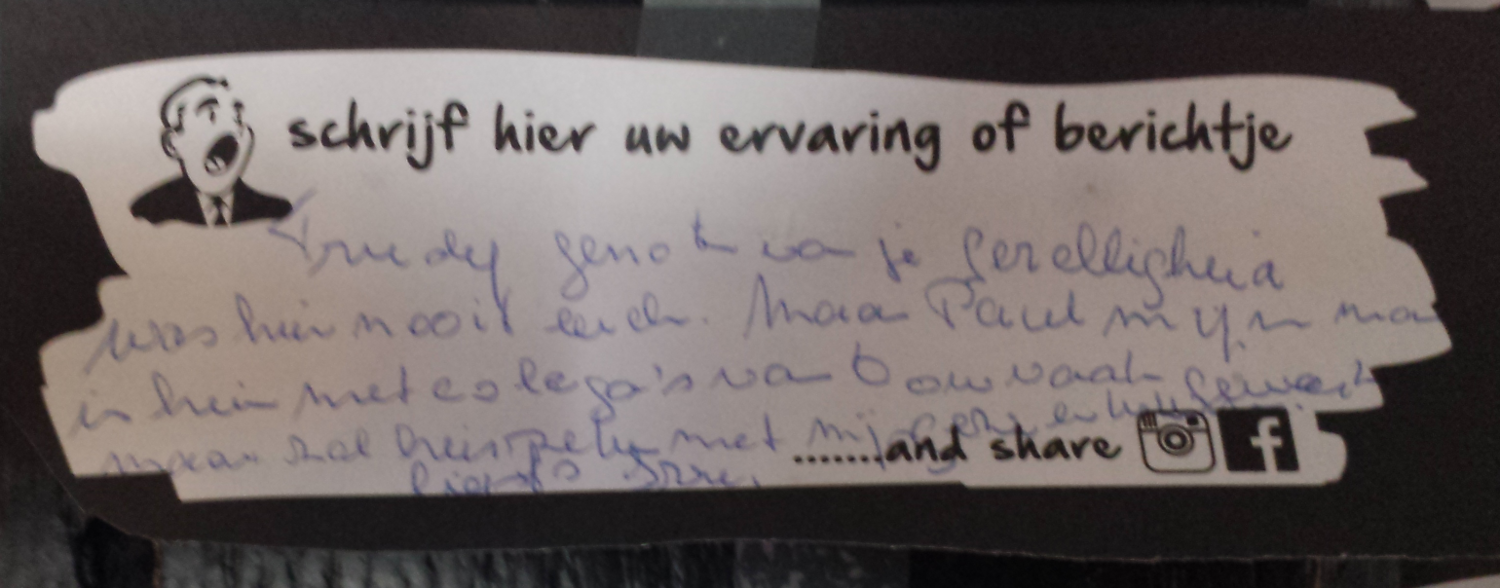 schrijf hier uw ervaring of berichtje
Trudy genot van je gezelligheid
was hier nooit eerder. Maar Paul mijn man
is hier met colega's van bouw vaak geweest
maar zal hier met mij
.......and share
liefs